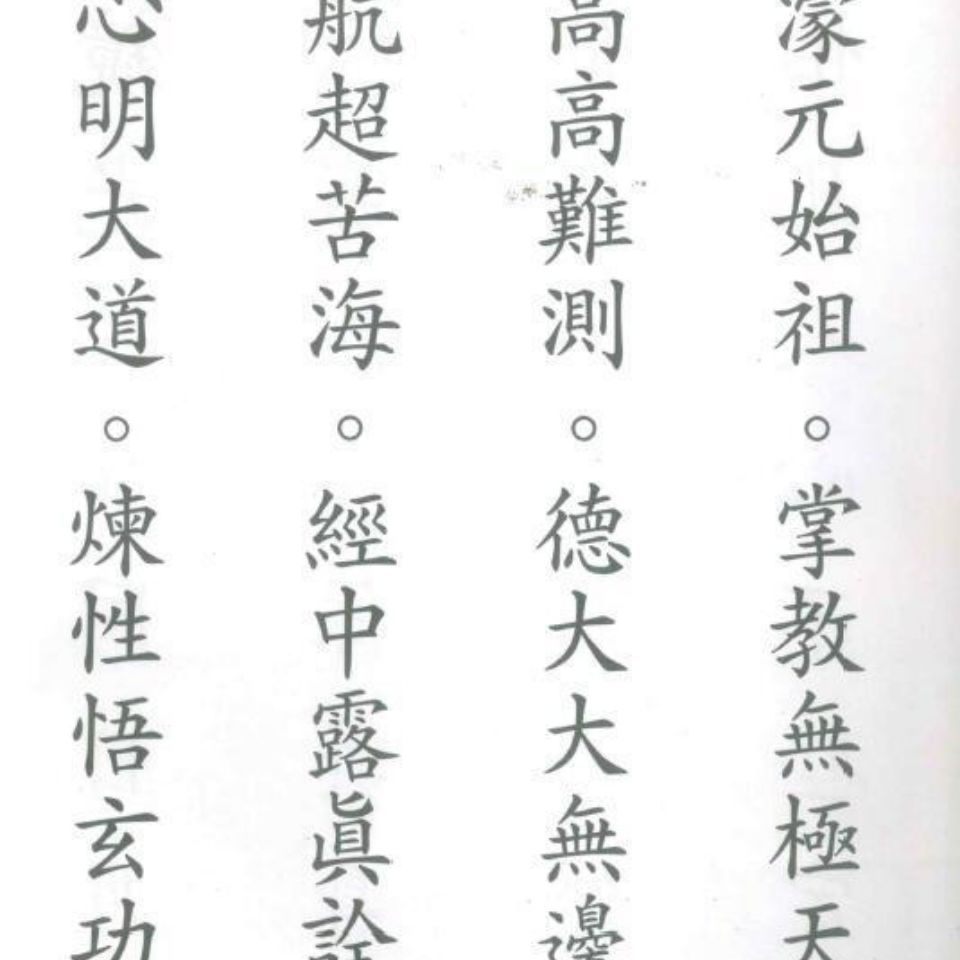 濛元始祖。掌教無極天
高高難測。德大大無邊
航超苦海。經中露眞詮
心明大道。煉性悟玄功